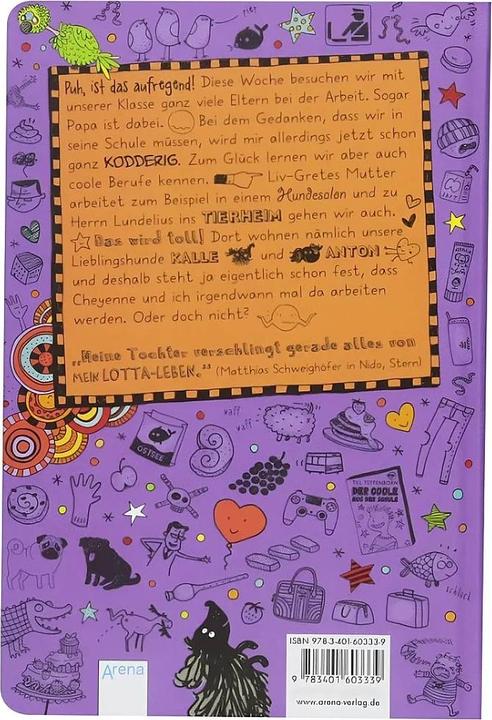 piep
Puh, ist das aufregend! Diese Woche besuchen wir mit
unserer Klasse ganz viele Eltern bei der Arbeit. Sogar
Papa ist dabei. Bei dem Gedanken, dass wir in
seine Schule müssen, wird mir allerdings jetzt schon
ganz KODDERIG. Zum Glück lernen wir aber auch
coole Berufe kennen. Liv-Gretes Mutter
arbeitet zum Beispiel in einem Hundesalon und zu
Herrn Lundelius ins TIERHEIM gehen wir auch.
Das wird toll! Dort wohnen nämlich unsere
Lieblingshunde KALLE und ANTON
und deshalb steht ja eigentlich schon fest, dass
Cheyenne und ich irgendwann mal da arbeiten
werden. Oder doch nicht?
„Meine Tochter verschlingt gerade alles von
MEIN LOTTA-LEBEN.“ (Matthias Schweighöfer in Nido, Stern)
waff
waff
OSTSEE
TIL TETTENBORN
DER COOLE
AUS DER SCHULE
schluck
Arena
ISBN 978-3-401-60333-9
9 783401 603339
www.arena-verlag.de